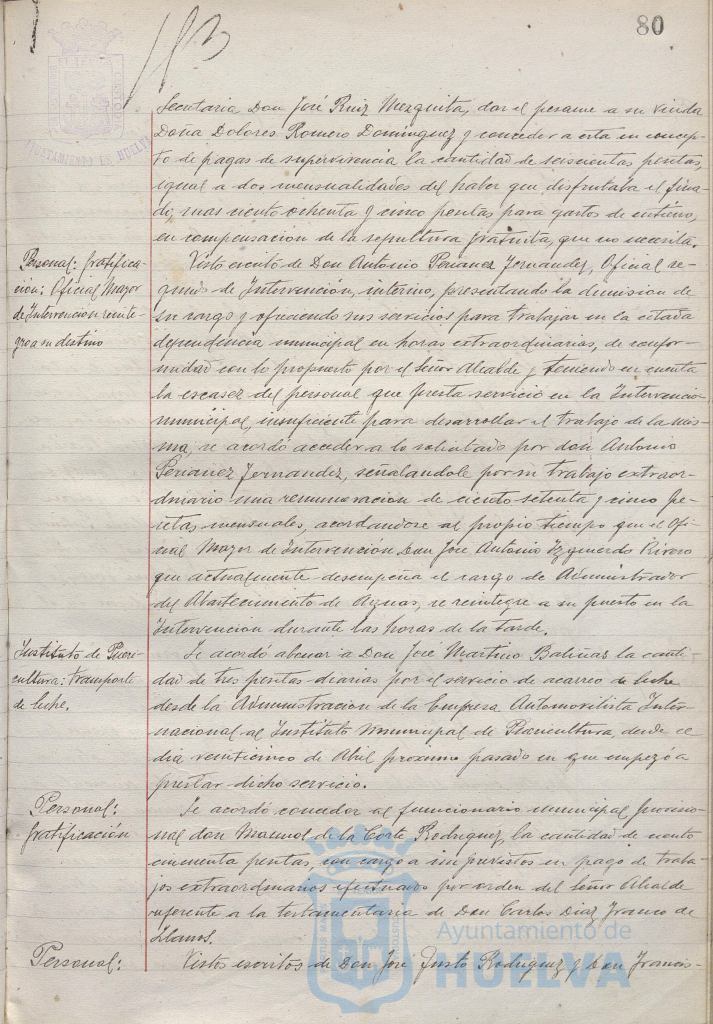 80
Secretaria Don José Ruiz Mezquita, dar el pesame a su viuda
Doña Dolores Romero Dominguez y conceder a esta en concep-
to de pagas de supervivencia la cantidad de seiscientas pesetas,
igual a dos mensualidades del haber que disfrutaba el fina-
do, mas ciento ochenta y cinco pesetas para gastos de entierro,
en compensacion de la sepultura gratuita, que no necesita.
Personal: gratifica-
cion: Oficial Mayor
de Intervencion reinte-
gro a su destino
Visto escrito de Don Antonio Periañez Fernandez, Oficial se-
gundo de Intervención, interino, presentando la dimision de
su cargo y ofreciendo sus servicios para trabajar en la citada
dependencia municipal en horas extraordinarias, de confor-
midad con lo propuesto por el Señor Alcalde y teniendo en cuenta
la escasez del personal que presta servicio en la Intervencion
municipal, insuficiente para desarrollar el trabajo de la mis-
ma, se acordó acceder a lo solicitado por don Antonio
Periañez Fernandez, señalandole por su trabajo extraor-
dinario una remuneracion de ciento setenta y cinco pe-
setas mensuales, acordandose al propio tiempo que el Ofi-
cial Mayor de Intervención Don José Antonio Yzquierdo Rivero
que actualmente desempeña el cargo de Administrador
del Abastecimiento de Aguas, se reintegre a su puesto en la
Intervencion durante las horas de la tarde.
Instituto de Pueri-
cultura: transporte
de leche.
Se acordó abonar a Don José Martino Baliñas la canti-
dad de tres pesetas diarias por el servicio de acarreo de leche
desde la Administracion de la Empresa Automovilista Inter-
nacional al Instituto Municipal de Puericultura, desde el
dia veinticinco de Abril proximo pasado en que empezó a
prestar dicho servicio.
Personal:
gratificación
Se acordó conceder al funcionario municipal provisio-
nal don Manuel de la Corte Rodriguez, la cantidad de ciento
cincuenta pesetas, con cargo a imprevistos en pago de traba-
jos extraordinarios efectuados por orden del Señor Alcalde
referente a la testamentaria de Don Carlos Diaz Franco de
Llanos.
Personal:
Vistos escritos de Don José Justo Rodriguez y Don Francis-
Ayuntamiento de
HUELVA